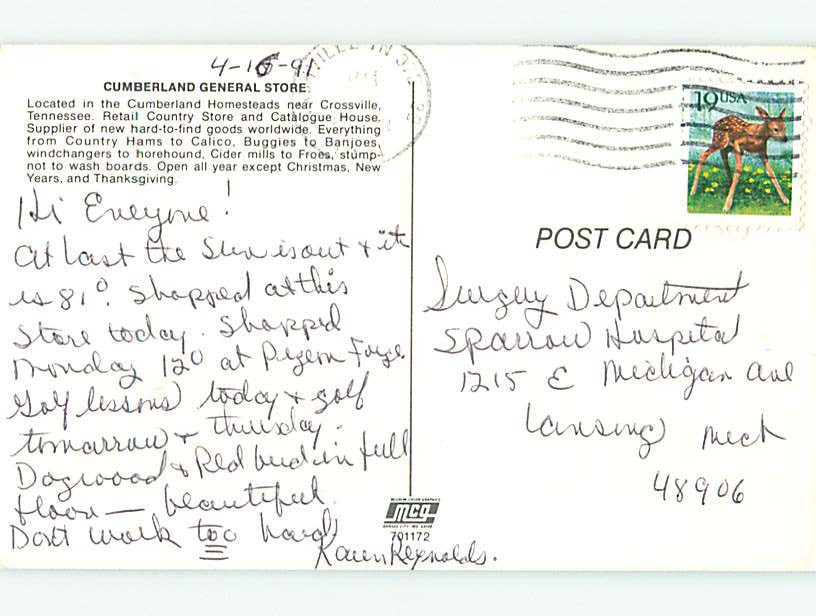 4-16-91
CUMBERLAND GENERAL STORE
Located in the Cumberland Homesteads near Crossville,
Tennessee. Retail Country Store and Catalogue House.
Supplier of new hard-to-find goods worldwide. Everything
from Country Hams to Calico, Buggies to Banjoes,
windchangers to horehound, Cider mills to Froes, stump-
not to wash boards. Open all year except Christmas, New
Years, and Thanksgiving.
Hi Everyone!
At last the Sun is out & it
is 81°. Shopped at this
Store today. Shopped
Monday 12° at Pigeon Forge.
Golf lessons today & golf
tomorrow & thursday.
Dogwood & Redbud in full
floor — beautiful.
Don't work too hard
Karen Reynolds.
19 USA
POST CARD
Surgery Department
Sparrow Hospital
1215 E Michigan Ave
Lansing Mich
48906
mcg
701172